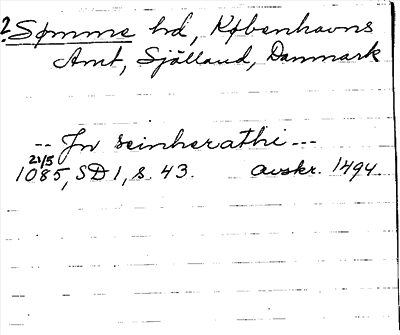 ? Sømme hd, Københavns
Amt, Sjælland, Danmark
-- Jn seinherathi ---
21/5
1085, SD 1, s. 43. avskr. 1494.